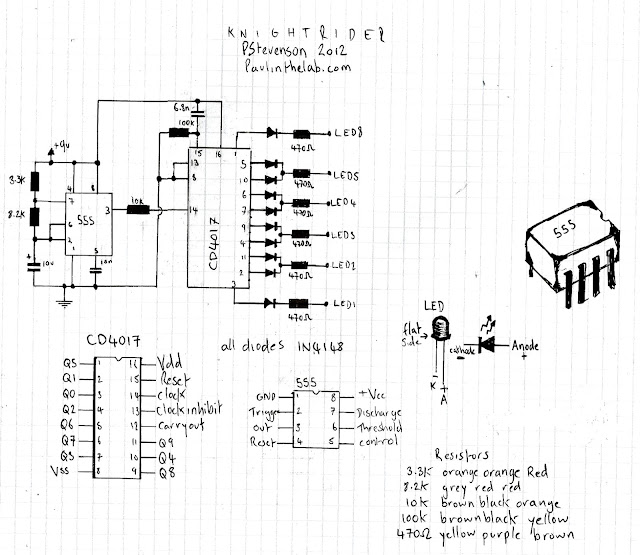 KNIGHTRIDER
PStevenson 2012
Paulinthelab.com
6.8n
100k
+9v
3.3k
8.2k
10u
4
8
7
6
2
1
5
3
555
10n
10k
15
16
1
13
8
14
CD4017
5
10
6
7
9
4
11
2
3
470Ω
LED8
470Ω
LED5
470Ω
LED4
470Ω
LED3
470Ω
LED2
470Ω
LED1
all diodes IN4148
555
LED
flat
side
K
A
cathode
Anode
+
CD4017
Q5 1 16 Vdd
Q1 2 15 Reset
Q0 3 14 clock
Q2 4 13 clock inhibit
Q6 5 12 carryout
Q7 6 11 Q9
Q3 7 10 Q4
Vss 8 9 Q8
555
GND 1 8 +Vcc
Trigger 2 7 Discharge
Out 3 6 Threshold
Reset 4 5 control
Resistors
3.3k orange orange Red
8.2k grey red red
10k brown black orange
100k brown black yellow
470Ω yellow purple brown